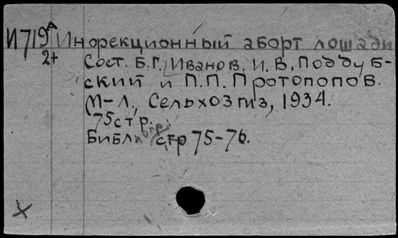 И719а Инорекционный аборт лошади
2+ Сост. Б.Г. Иванов, И.В. Поддуб-
ский и П.П. Протопопов.
М-Л, Сельхозгиз, 1934.
75 стр.
Библиогр. стр 75-76.